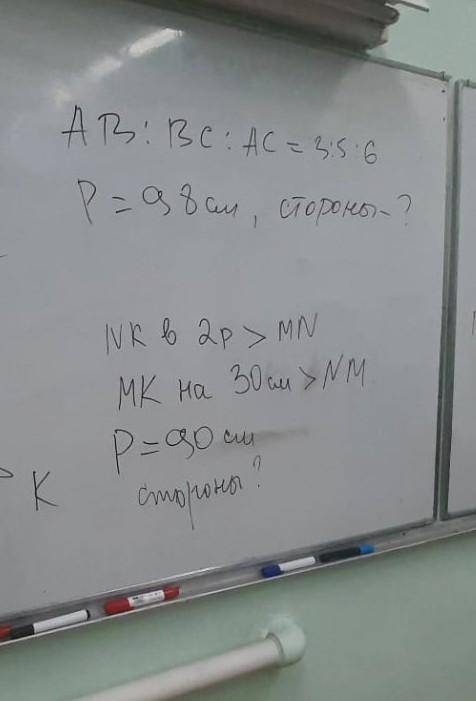 AB : BC : AC = 3:5:6
P = 98 см, стороны - ?
NK в 2р > MN
MK на 30 см > NM
P = 90 см
K
стороны?